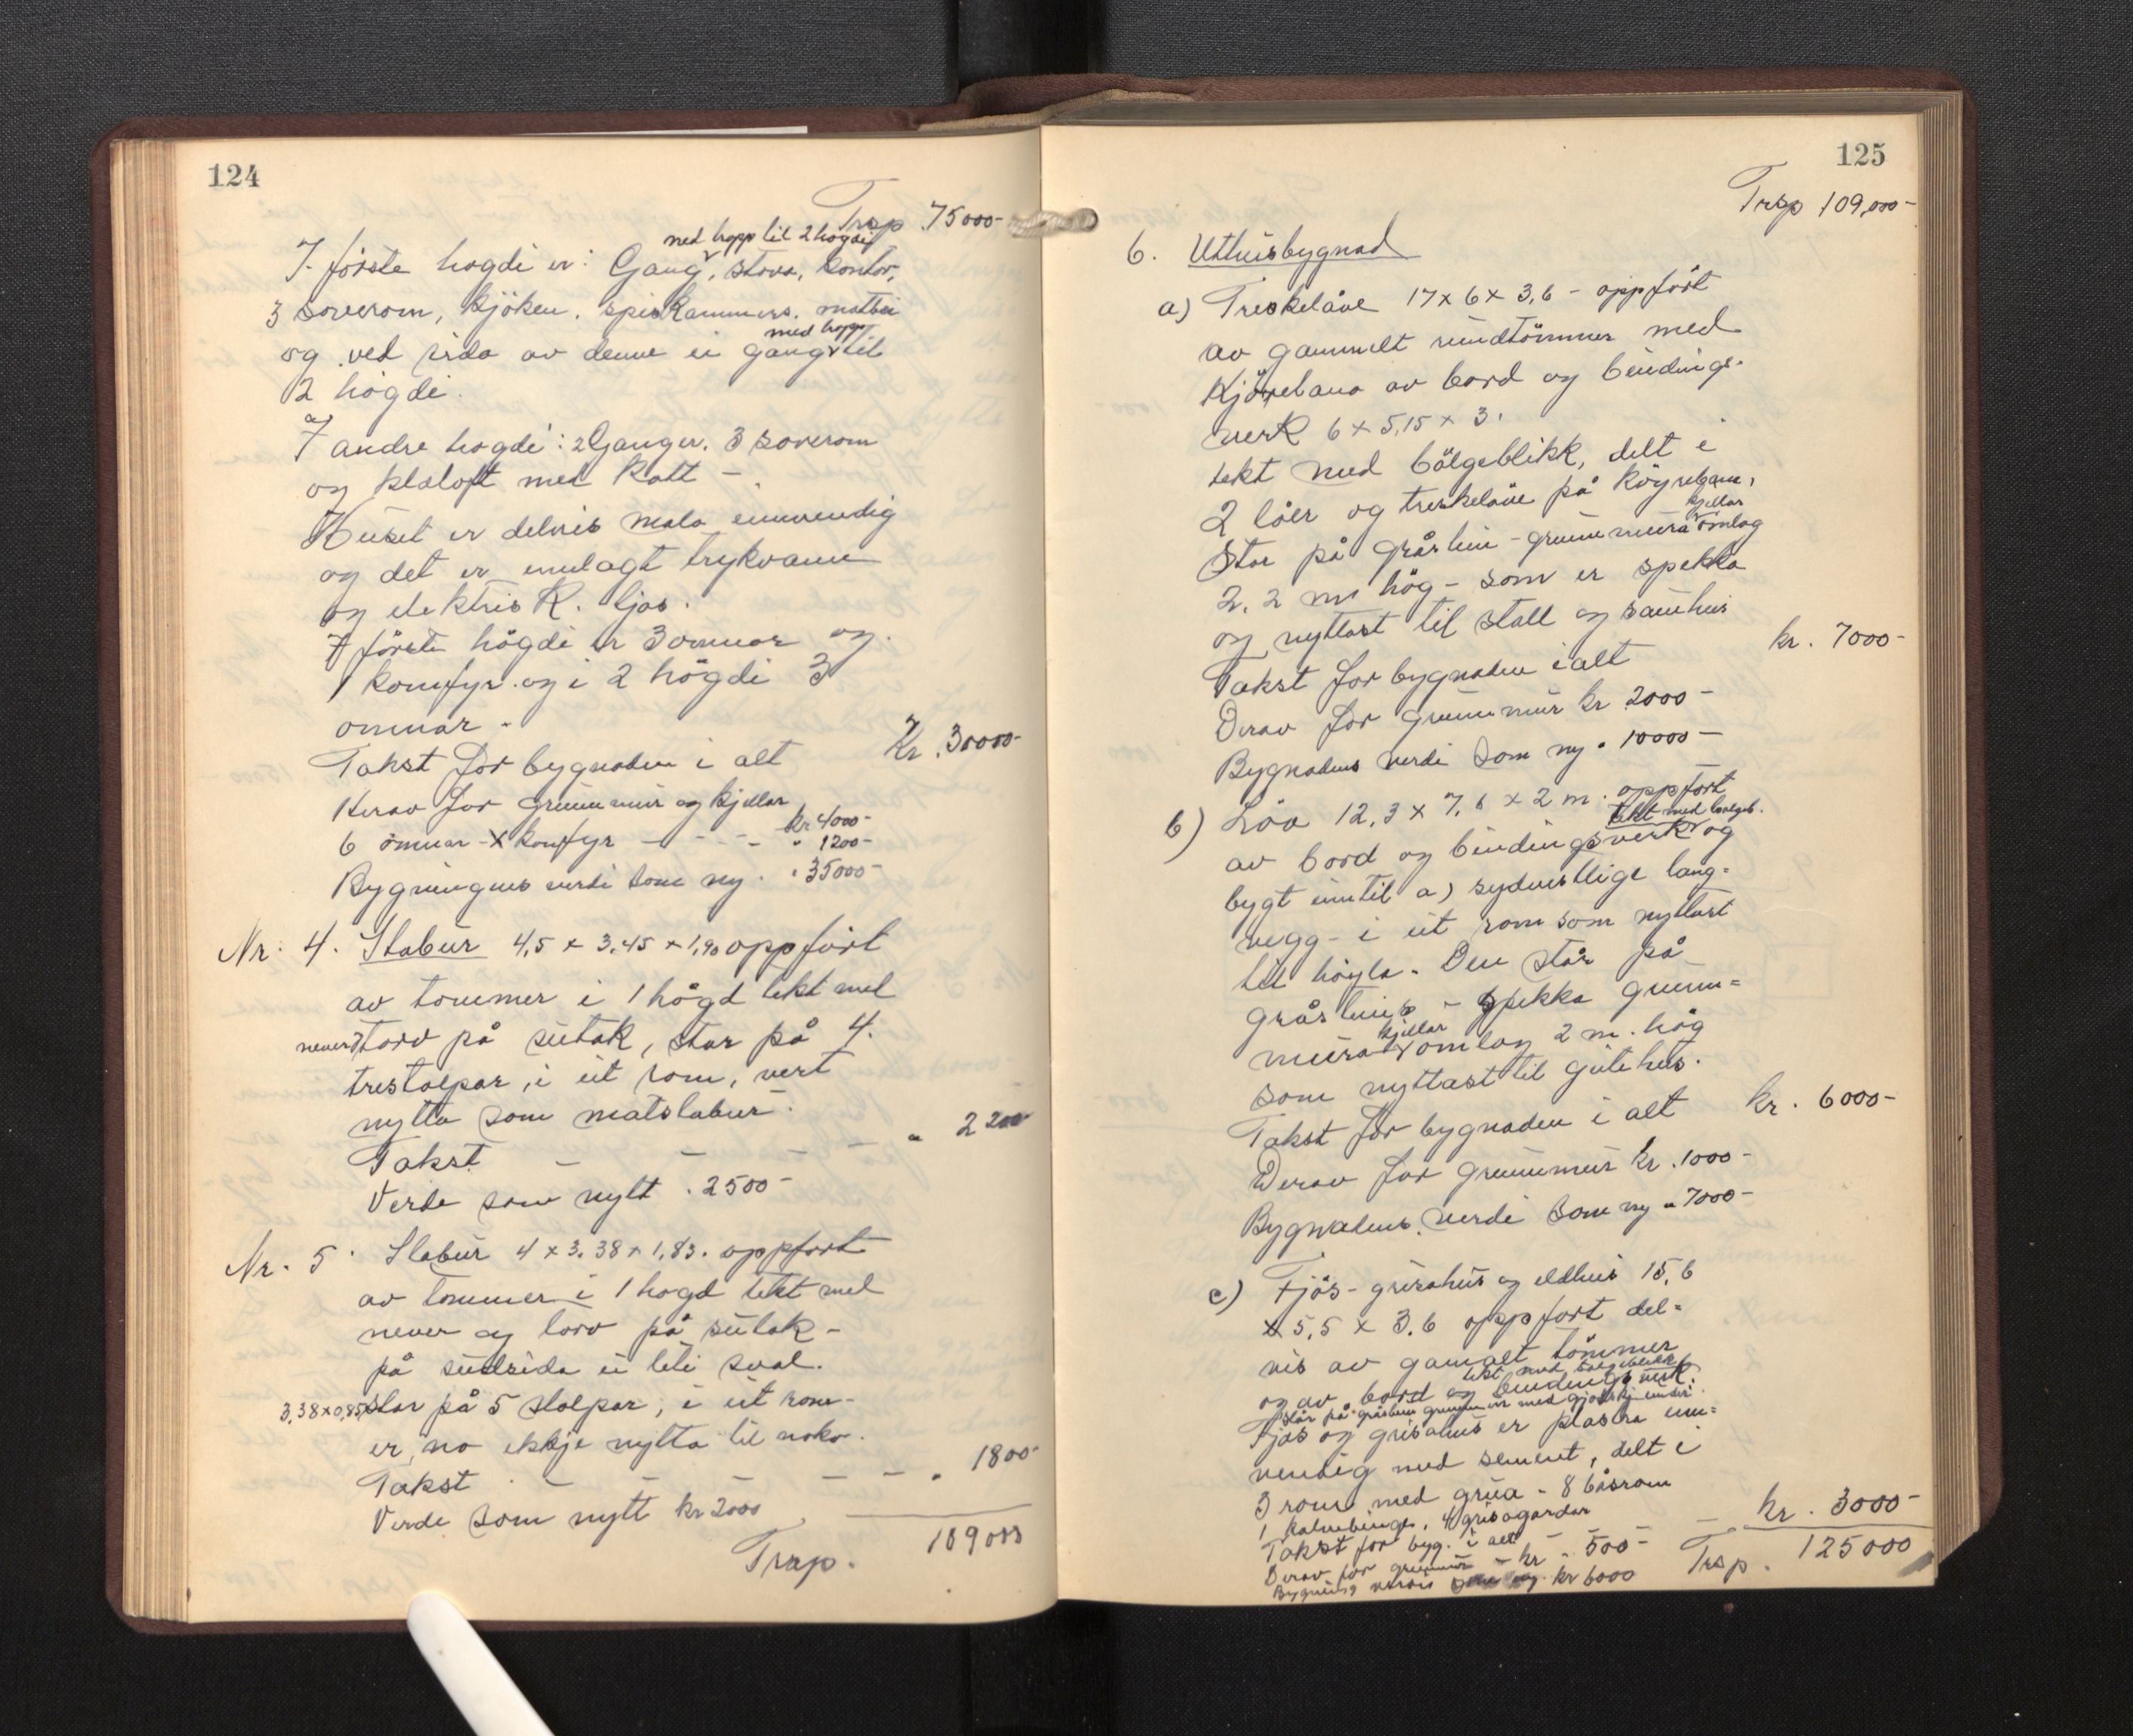 124
Trsp 75000-
med trapp til 2 högdi
I första hogdi er: Gang, stova, kontor,
3 soverom, kjöken, spiskammers, matbu
med trapp
og ved sida av denne ei gang til
2 högdi.
I andre hogdi: 2 Ganger, 3 soverom
og klæloft med kott -
Huset er delvis mala innvendig
og det er innlagt trykvann
og elektrisk. ljos.
I förste högdi er 3 omnar og
1 komfyr og i 2 högdi 3
omnar -
Takst for bygnaden i alt Kr. 30000-
Herav for grunnmur og kjellar
kr 4000-
6 omnar - komfyr - - - - " 1200-
Bygningens verdi som ny. " 35000-
Nr. 4. Stabur 4,5 x 3,45 x 1,90 oppfört
av tommer i 1 högd tekt med
never torv på sutak, star på 4
trestolpar, i eit rom, vert
nytta som matstabur.
Takst - - - - " 2200
Verde som nytt . 2500-
Nr. 5. Stabur 4 x 3.38 x 1,83. oppfort
av tommer i 1 hogd tekt med
never og torv på sutak -
på sudsida ei liti sval.
3,38x0,85 star på 5 stolpar, i eit rom -
er no ikkje nytta til noko.
Takst - - - - - " 1800-
Verde som nytt kr 2000
Trsp. 109000
125
Trsp 109,000-
6. Uthusbygnad
a) Treskelåve 17 x 6 x 3,6 - oppfört
av gammelt rundtömmer med
Kjörebana av bord og bindings-
verk 6 x 5,15 x 3.
tekt med bölgeblikk, delt i
2 löer og treskelåve på köyrebane,
kjellar
Star på gråstein - grunnmura omlag
2,2 m hög - som er spekka
og nyttast til stall og sauhus
Takst for bygnaden i alt kr. 7000-
Derav for grunnmur kr 2000-
Bygnadens verdi som ny " 10000-
b) Löa 12,3 x 7,6 x 2 m. oppfört
tekt med bölgeb.
av bord og bindingsverk og
bygt inntil a) sydvestlige lang-
vegg - i eit rom som nyttast
til höyla. Den står på
gråsteins - spekka grunn-
kjellar
mura omlag 2 m. hög
som nyttast til geitehus.
Takst for bygnaden i alt kr. 6000-
Derav for grunnmur kr. 1000-
Bygnadens verdi som ny " 7000-
c) Fjös - grisahus og eldhus 15,6
x 5,5 x 3.6 oppfört del-
vis av gamalt tömmer
tekt med bölgeblikk
og av bord og bindingsverk.
Står på gråstein grunnmur med gjödselkj. under.
Fjös og grisahus er plastra inn-
vendig med sement, delt i
3 rom med grua - 8 båsrom
1 kalvebinge, 4 grisagardar
Takst for byg. i alt - - - kr. 3000-
Derav for grunnmur - kr. 500-
Bygning verdi som ny kr 6000
Trsp. 125000